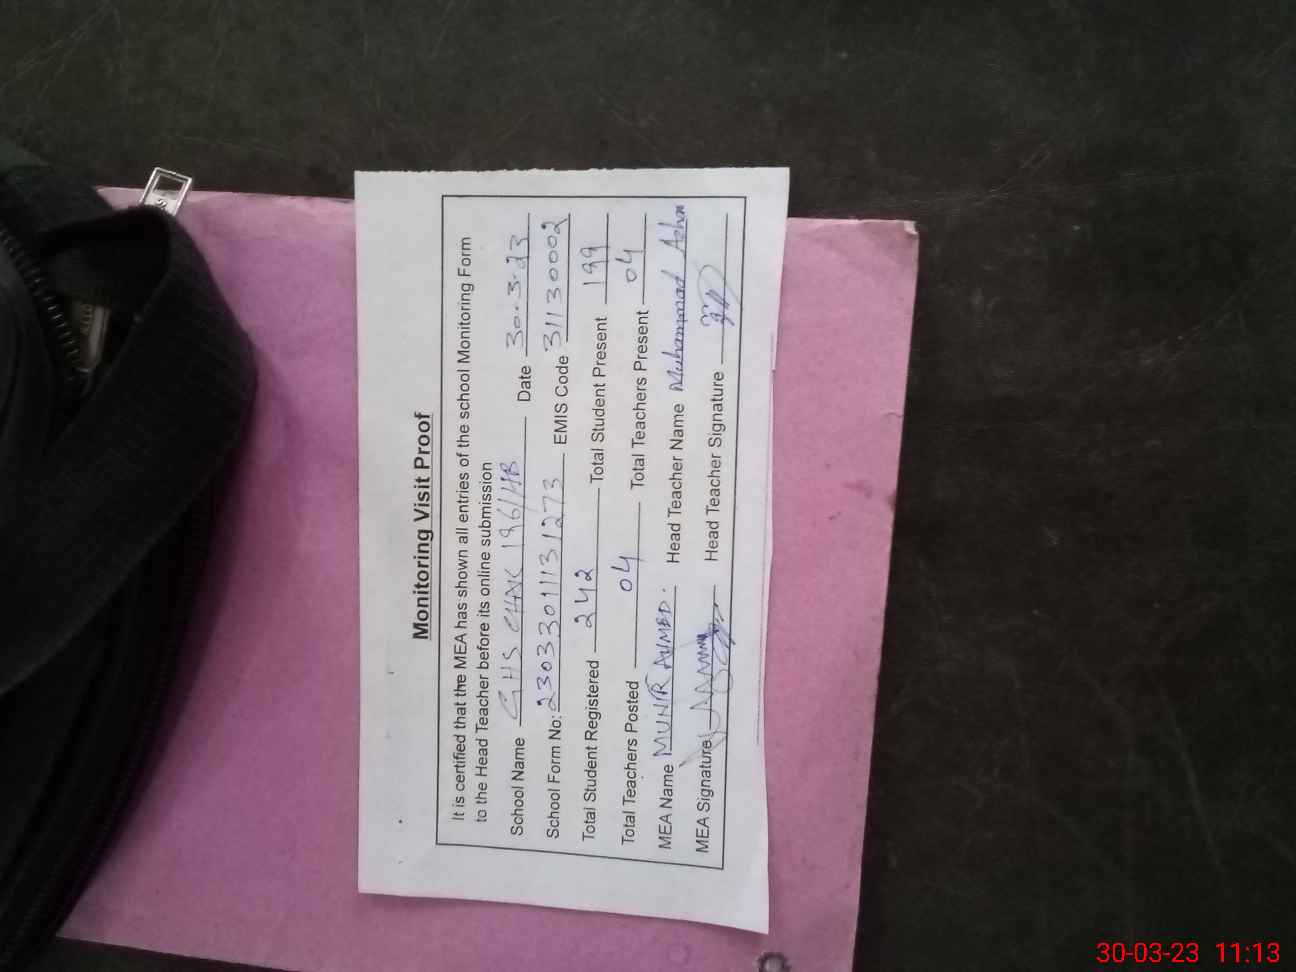 Monitoring Visit Proof
It is certified that the MEA has shown all entries of the school Monitoring Form
to the Head Teacher before its online submission
School Name GHS CHAK 196/HB Date 30.3.23
School Form No: 230330111 31273 EMIS Code 31130002
Total Student Registered 242 Total Student Present 199
Total Teachers Posted 04 Total Teachers Present 04
MEA Name MUNIR AHMED. Head Teacher Name Muhammad
MEA Signature Head Teacher Signature
30-03-23 11:13